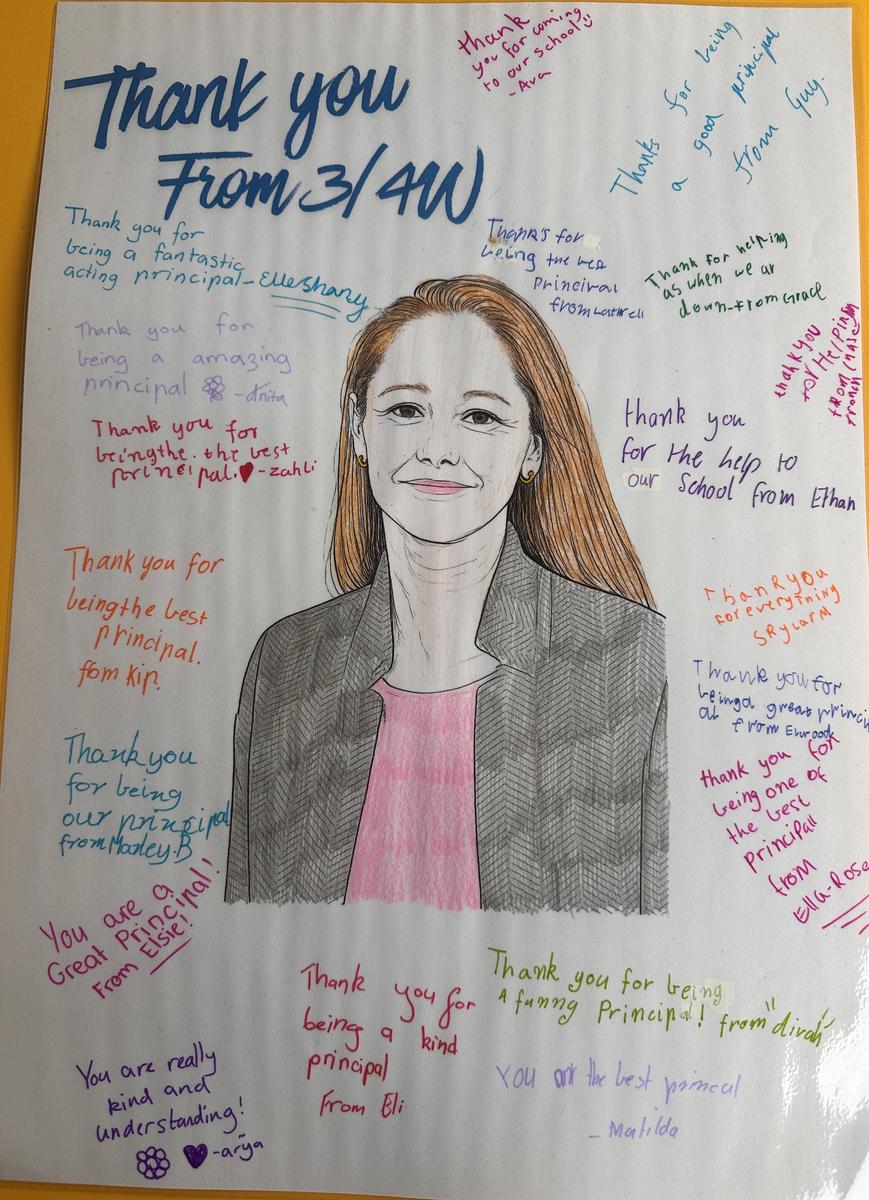 Thank you
From 3/4W
thank
you for coming
to our school
-Ava
Thanks for being
a good principal
from Guy.
Thank you for
being a fantastic
acting principal-Elleshany
Thank's for
being the best
Principal
from
Thank for helping
as when we ar
down-from Grace
Thank you for
being a amazing
principal
-Anita
thank you
for Helping
from
Thank you for
beingthe.the best
principal.♥-zahli
thank you
for the help to
our School from Ethan
Thank you for
beingthe best
principal.
fom Kip.
Thank you
for everything
Skylar M
Thank you for
beinga great princip
al from
Thank you
for being
our principal
from Marley.B
thank you for
being one of
the best
Principall
from
Ella-Rose
You are a
Great Principal!
From Elsie!
Thank you for
being a kind
principal
From Eli
Thank you for being
A funny Principal! from "dirah"
You are really
kind and
understanding!
♥-arya
You are the best princal
-Matilda